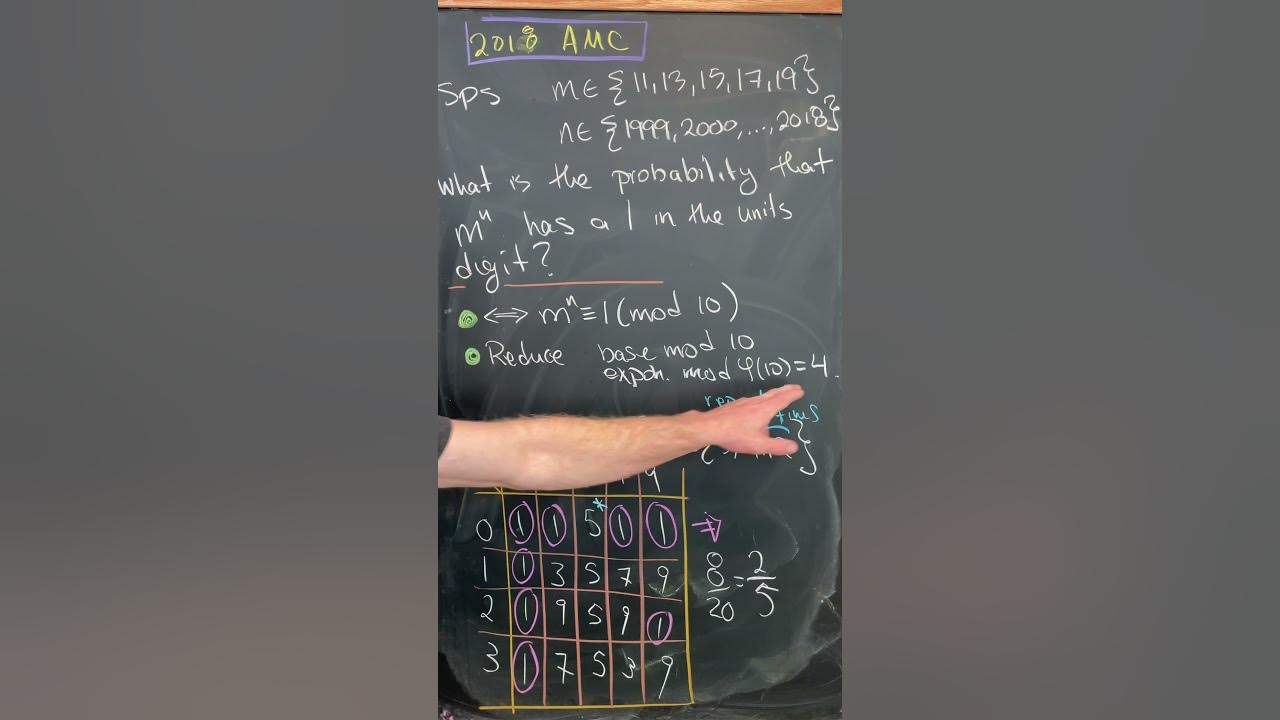 2018 AMC
Sps m ∈ {11,13,15,17,19}
n ∈ {1999,2000,...,2018}
What is the probability that
mⁿ has a 1 in the units
digit?
⟺ mⁿ ≡ 1 (mod 10)
Reduce base mod 10
expon. mod φ(10)=4.
9
0 1 1 5* 1 1 ⇒
1 1 3 5 7 9 8/20 = 2/5
2 1 9 5 9 1
3 1 7 5 3 9